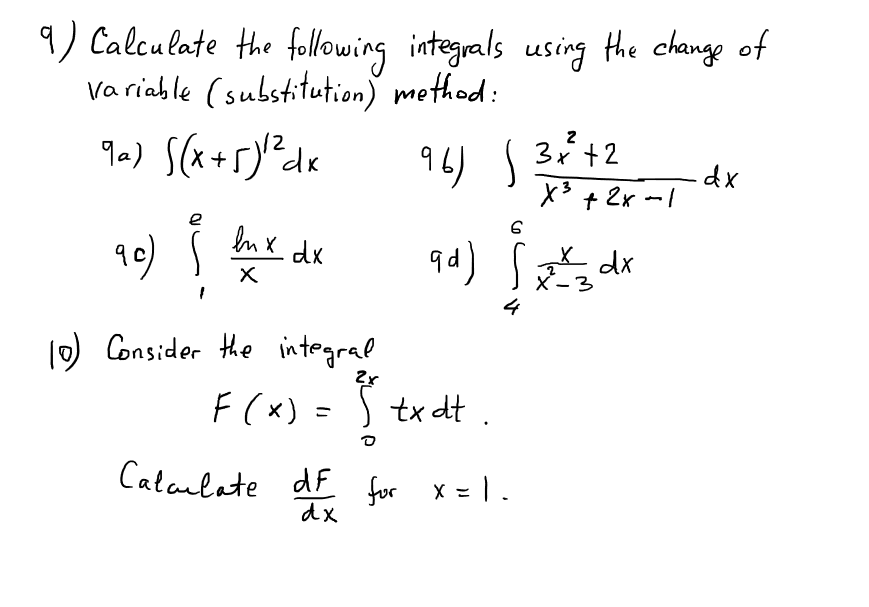 9) Calculate the following integrals using the change of
variable (substitution) method:
9a) ∫(x+5)^12 dx 9b) ∫ (3x^2+2)/(x^3+2x-1) dx
9c) ∫_1^e (ln x)/x dx 9d) ∫_4^6 x/(x^2-3) dx
10) Consider the integral
F(x) = ∫_0^{2x} tx dt.
Calculate dF/dx for x=1.